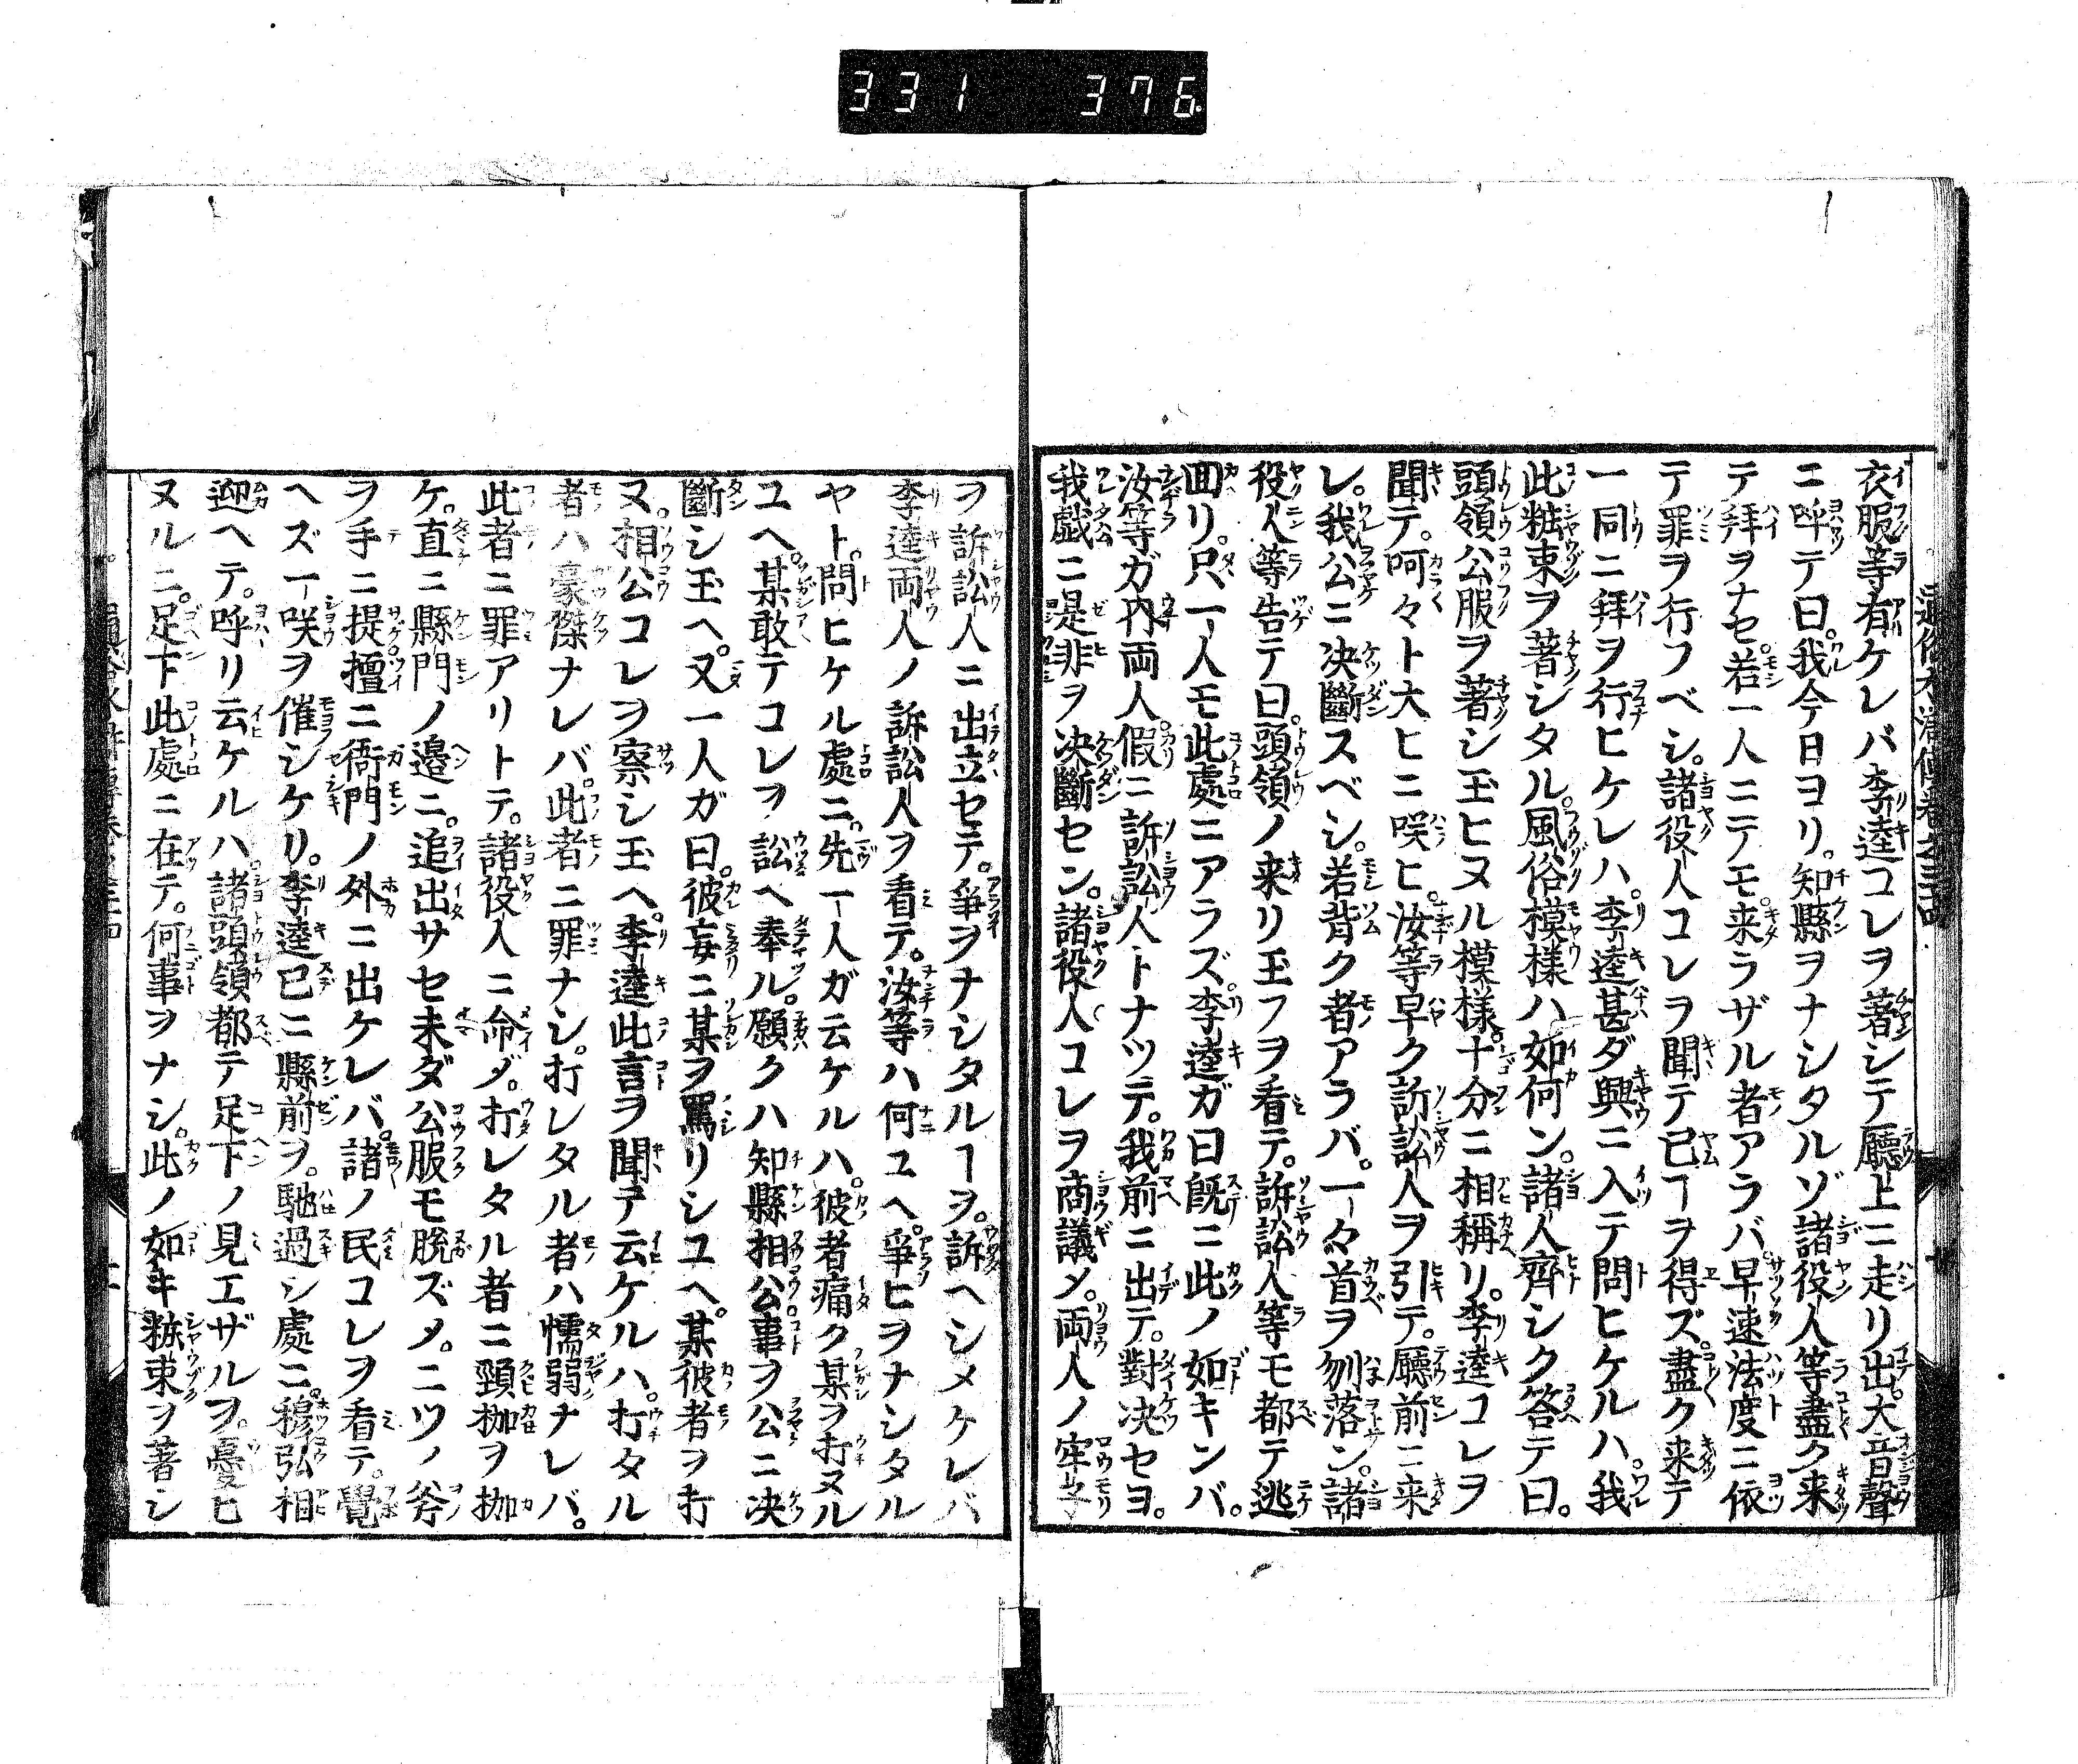 331 376
衣服等有ケレバ李逵コレヲ著シテ廳上ニ走リ出大音聲
ニ呼テ曰我今日ヨリ知縣ヲナシタルゾ諸役人等盡ク来
テ拜ヲナセ若一人ニテモ来ラザル者アラバ早速法度ニ依
テ罪ヲ行フベシ諸役人コレヲ聞テ已ヿヲ得ズ盡ク来テ
一同ニ拜ヲ行ヒケレハ李逵甚ダ興ニ入テ問ヒケルハ我
此粧束ヲ著シタル風俗模樣ハ如何ン諸人齊シク答テ曰
頭領公服ヲ著シ玉ヒヌル模樣十分ニ相稱リ李逵コレヲ
聞テ呵々ト大ヒニ咲ヒ汝等早ク訴訟人ヲ引テ廳前ニ来
レ我公ニ决斷スベシ若背ク者アラバ一々首ヲ刎落ン諸
役人等告テ曰頭領ノ来リ玉フヲ看テ訴訟人等モ都テ逃
囬リ只一人モ此處ニアラズ李逵ガ曰既ニ此ノ如キンバ
汝等ガ内両人假ニ訴訟人トナツテ我前ニ出テ對决セヨ
我戯ニ是非ヲ决斷セン諸役人コレヲ商議メ両人ノ牢子
ヲ訴訟人ニ出立セテ爭ヲナシタルヿヲ訴ヘシメケレバ
李逵両人ノ訴訟人ヲ看テ汝等ハ何ユヘ爭ヒヲナシタル
ヤト問ヒケル處ニ先一人ガ云ケルハ彼者痛ク某ヲ打ヌル
ユヘ某敢テコレヲ訟ヘ奉ル願クハ知縣相公事ヲ公ニ决
斷シ玉ヘ又一人ガ曰彼妄ニ某ヲ罵リシユヘ某彼者ヲ打
ヌ相公コレヲ察シ玉ヘ李逵此言ヲ聞テ云ケルハ打タル
者ハ豪傑ナレバ此者ニ罪ナシ打レタル者ハ懦弱ナレバ
此者ニ罪アリトテ諸役人ニ命ジ打レタル者ニ頸枷ヲ枷
ケ直ニ縣門ノ邉ニ追出サセ未ダ公服モ脱ズメ二ツノ斧
ヲ手ニ提擅ニ衙門ノ外ニ出ケレバ諸ノ民コレヲ看テ覺
ヘズ一咲ヲ催シケリ李逵已ニ縣前ヲ馳過シ處ニ穆弘相
迎ヘテ呼リ云ケルハ諸頭領都テ足下ノ見エザルヲ憂ヒ
ヌルニ足下此處ニ在テ何事ヲナシ此ノ如キ粧束ヲ著シ